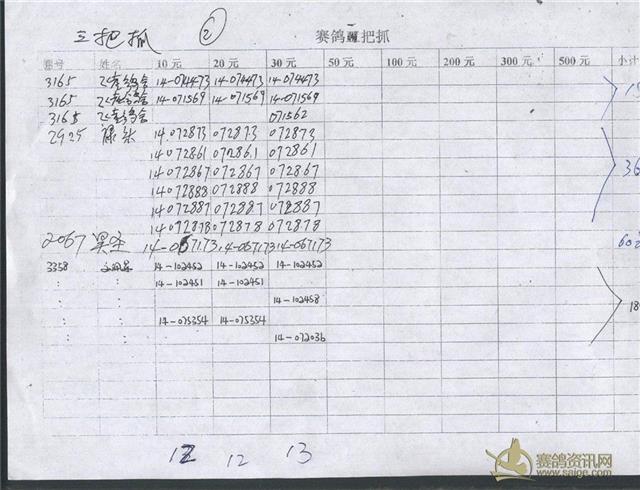 三把抓 ② 赛鸽 把抓
赛号 姓名 10元 20元 30元 50元 100元 200元 300元 500元 小计
3165 14-074473 14-074473 14-074473
3165 14-071569 14-071569 14-071569
3165 071562
2925 14.072873 072873 072873
14072861 072861 072861
14072867 072867 072867
14072888 072888 072888
14072887 072887 072887
14072878 072878 072878
2067 14-067173 14-067173 14-067173
3358 14-102452 14-102452 14-102452
: : 14-102451 14-102451
: : 14-102458
: : 14-075354 14-075354
: : 14-072036
12 12 13
赛鸽资讯网
www.saige.com